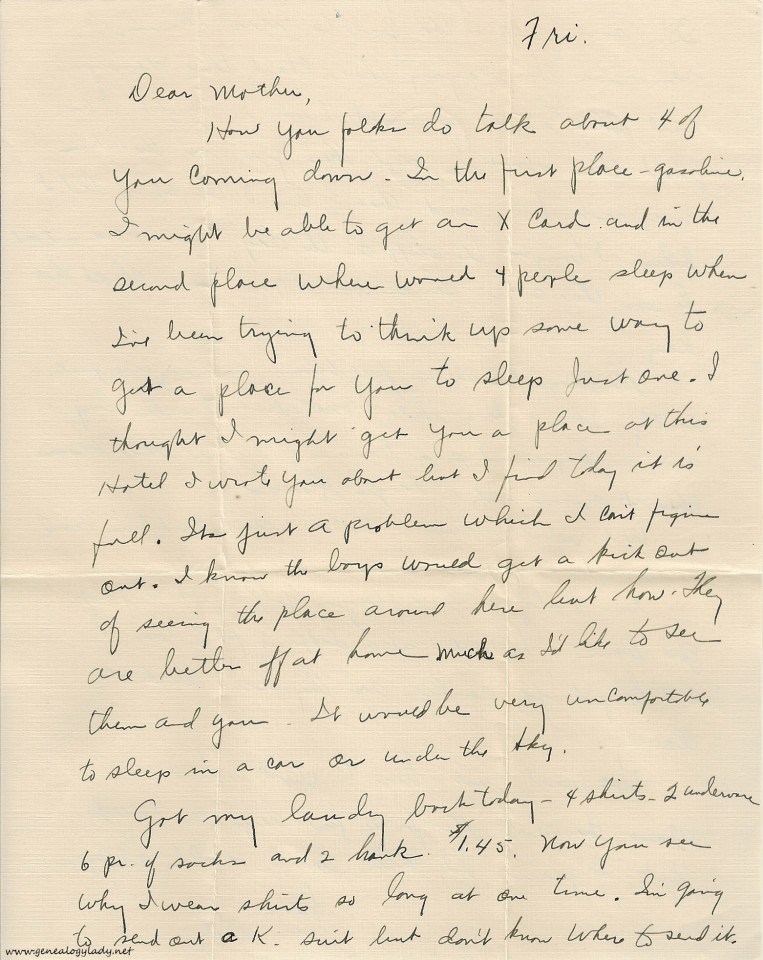 Fri.
Dear Mother,
How you folks do talk about 4 of
you coming down. In the first place - gasoline.
I might be able to get an X Card and in the
second place where would 4 people sleep when
I've been trying to think up some way to
get a place for you to sleep Just one. I
thought I might get you a place at this
Hotel I wrote you about but I find today it is
full. Its just a problem which I can't figure
out. I know the boys would get a kick out
of seeing the place around here but how. They
are better off at home much as I'd like to see
them and you. It would be very uncomfortable
to sleep in a car or under the sky.
Got my laundy back today - 4 shirts - 2 underware
6 pr. of socks and 2 hank. $1.45. Now you see
why I wear shirts so long at one time. I'm going
to send out a K. suit but don't know where to send it.
www.genealogylady.net